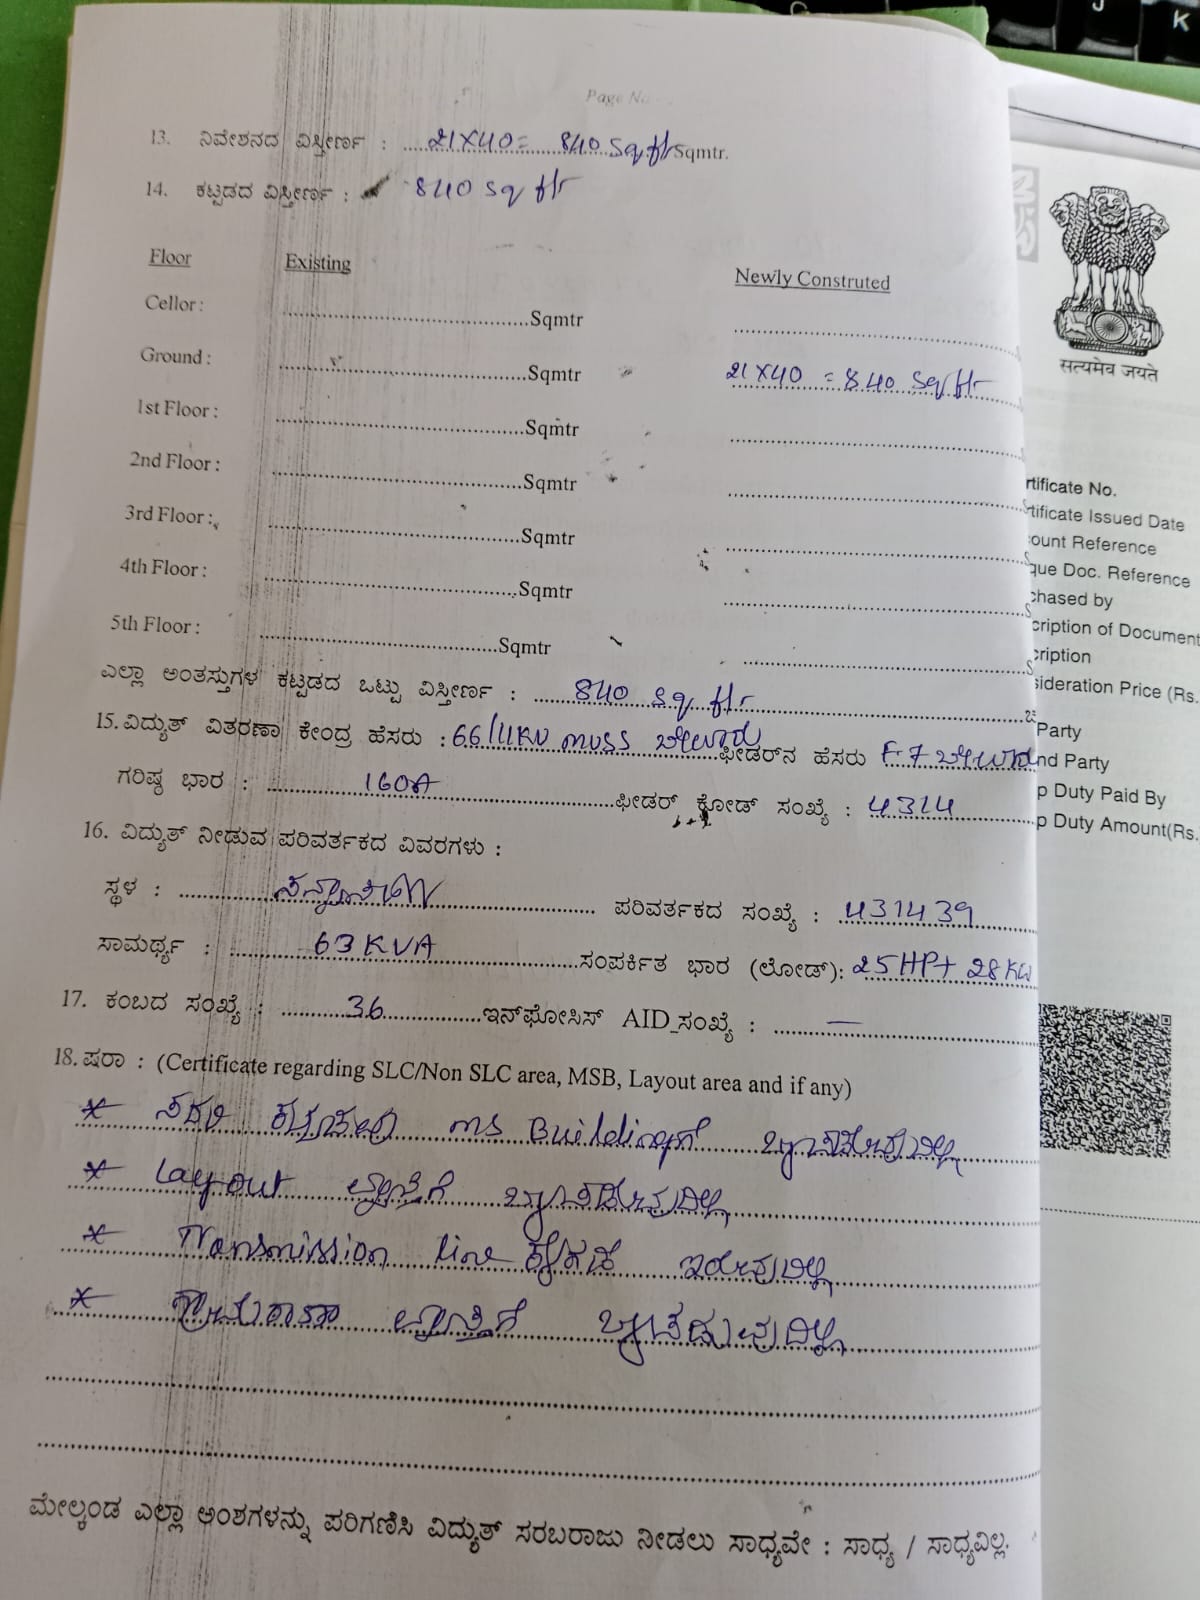 Page No
13. ನಿವೇಶನದ ವಿಸ್ತೀರ್ಣ : 21X40= 840 Sq.ft Sqmtr.
14. ಕಟ್ಟಡದ ವಿಸ್ತೀರ್ಣ : 840 sq ft
Floor Existing Newly Construted
Cellor : Sqmtr
Ground : Sqmtr 21X40 = 840 Sq ft
1st Floor : Sqmtr
2nd Floor : Sqmtr
3rd Floor : Sqmtr
4th Floor : Sqmtr
5th Floor : Sqmtr
ಎಲ್ಲಾ ಅಂತಸ್ತುಗಳ ಕಟ್ಟಡದ ಒಟ್ಟು ವಿಸ್ತೀರ್ಣ : 840 sq ft
15. ವಿದ್ಯುತ್ ವಿತರಣಾ ಕೇಂದ್ರ ಹೆಸರು : 66/11KV MUSS ಬೇಲೂರು ಫೀಡರ್‌ನ ಹೆಸರು F-7 ಬೇಲೂರು
ಗರಿಷ್ಠ ಭಾರ : 160A ಫೀಡರ್ ಕೋಡ್ ಸಂಖ್ಯೆ : 4314
16. ವಿದ್ಯುತ್ ನೀಡುವ ಪರಿವರ್ತಕದ ವಿವರಗಳು :
ಸ್ಥಳ : ಪರಿವರ್ತಕದ ಸಂಖ್ಯೆ : 431439
ಸಾಮರ್ಥ್ಯ : 63 KVA ಸಂಪರ್ಕಿತ ಭಾರ (ಲೋಡ್): 25HP+ 28KW
17. ಕಂಬದ ಸಂಖ್ಯೆ : 36 ಇನ್‌ಫೋಸಿಸ್ AID ಸಂಖ್ಯೆ : —
18. ಷರಾ : (Certificate regarding SLC/Non SLC area, MSB, Layout area and if any)
* ಸದರಿ ಕಟ್ಟಡವು MS Buildingಗೆ
* Layout ವ್ಯಾಪ್ತಿಗೆ ಬರುವುದಿಲ್ಲ
* Transmission line ಕೆಳಗಡೆ ಇರುವುದಿಲ್ಲ
* ವ್ಯಾಪ್ತಿಗೆ
ಮೇಲ್ಕಂಡ ಎಲ್ಲಾ ಅಂಶಗಳನ್ನು ಪರಿಗಣಿಸಿ ವಿದ್ಯುತ್ ಸರಬರಾಜು ನೀಡಲು ಸಾಧ್ಯವೇ : ಸಾಧ್ಯ / ಸಾಧ್ಯವಿಲ್ಲ.
सत्यमेव जयते
rtificate No.
rtificate Issued Date
ount Reference
que Doc. Reference
chased by
cription of Document
cription
sideration Price (Rs.
Party
nd Party
p Duty Paid By
p Duty Amount(Rs.
J
K